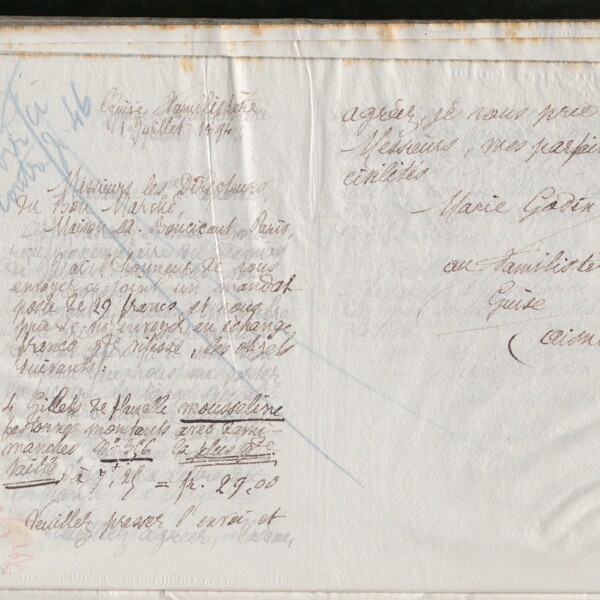 Guise Familistère
1 Juillet 1894
Messieurs les Directeurs
du Bon Marché,
Maison A. Boucicaut, Paris,
J'ai l'honneur de vous
envoyer ci-joint un mandat
poste de 29 francs et vous
prie de m'envoyer en échange
franco gare, les objets
suivants:
4 Gilets de flanelle mousseline
montants avec demi-
manches, N° 356 la plus gde
taille à 7f,25 = fr. 29,00
Veuillez presser l'envoi et
agréer, je vous prie
Messieurs, mes parfai
civilités
Marie Godin
au Familistè
Guise
(Aisn